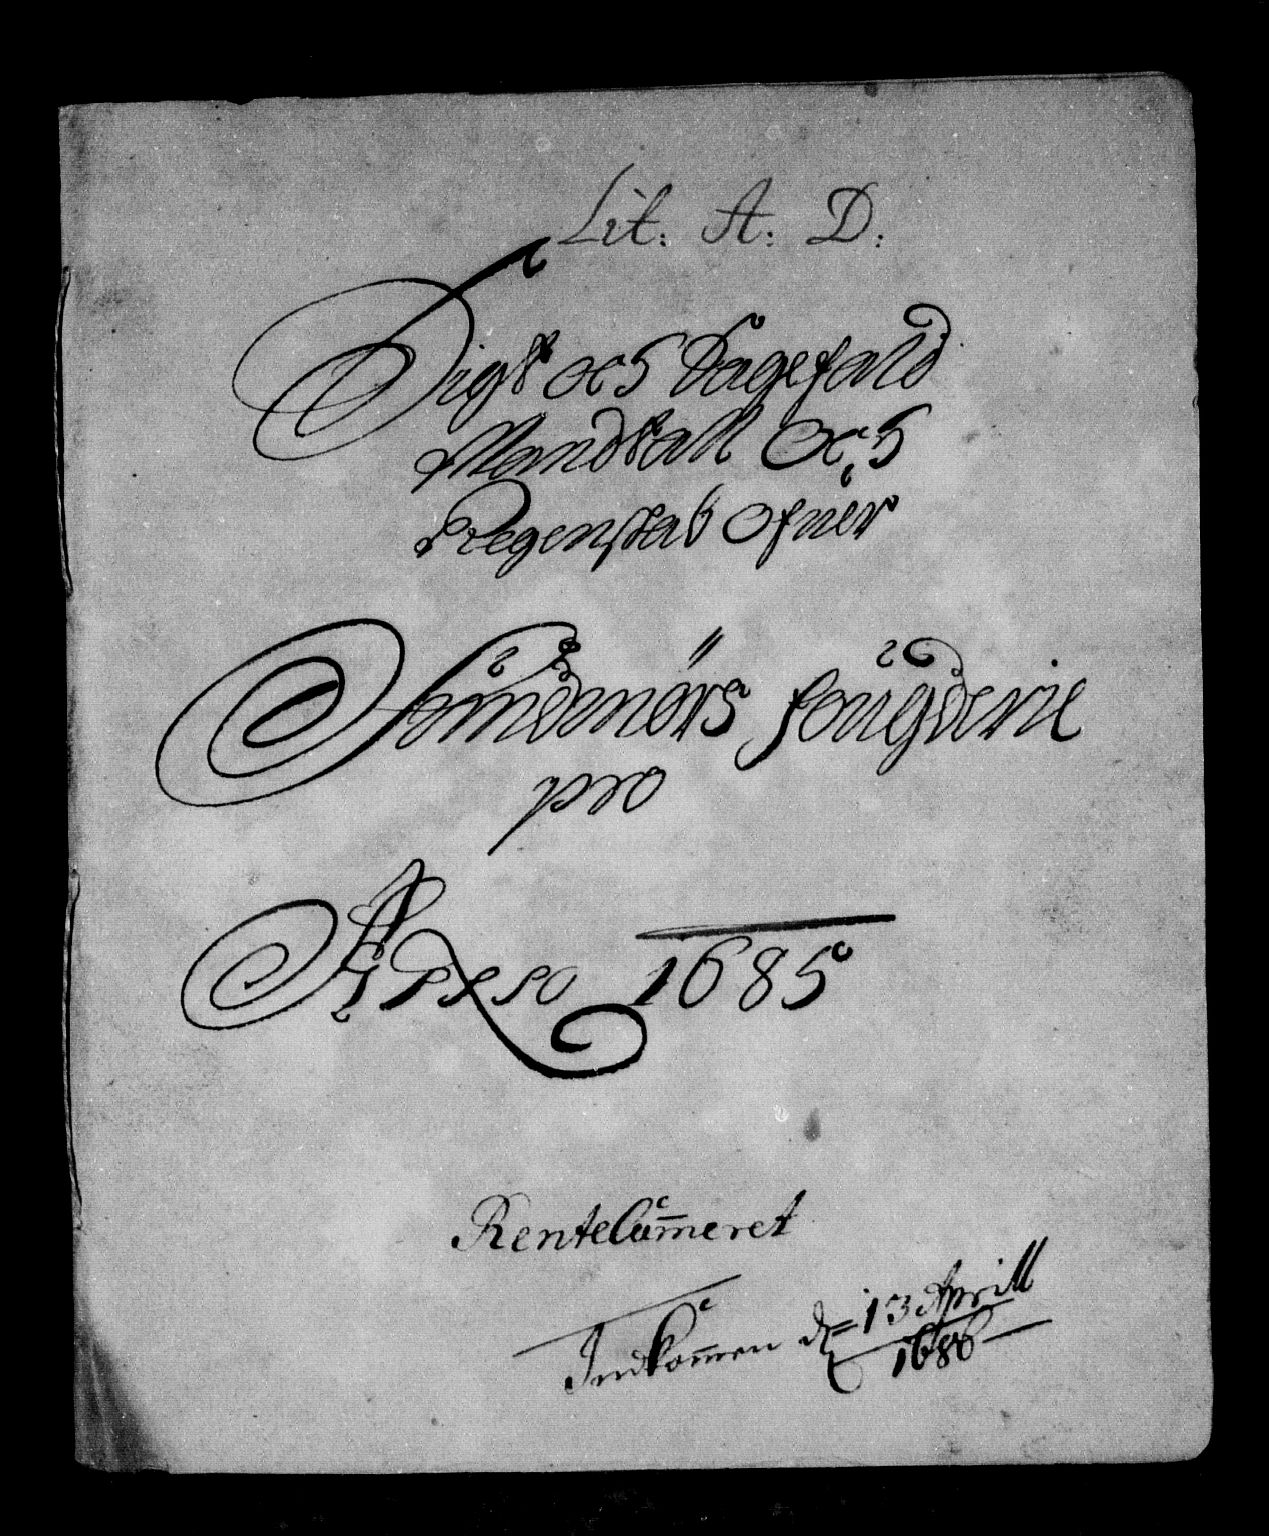 Lit: A: D:
Sigt och Sagefald
Mandtall och
Regenskab ofuer
Sundmörs fougderie
pro
Anno 1685
Rentecammeret
Indkommen d 13 Aprill
1686